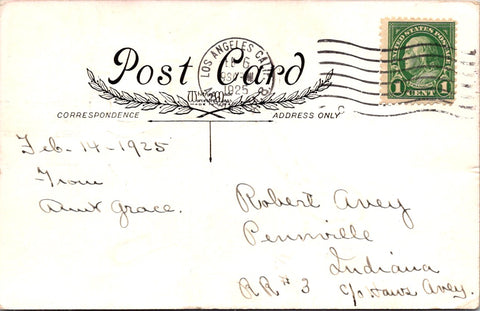 Post Card
CORRESPONDENCE
ADDRESS ONLY
LOS ANGELES CAL
6
1925
UNITED STATES POSTAGE
1 CENT 1
Feb-14-1925
From
Aunt Grace.
Robert Avey
Pennville
Indiana
RR#3 c/o Haws Avey.